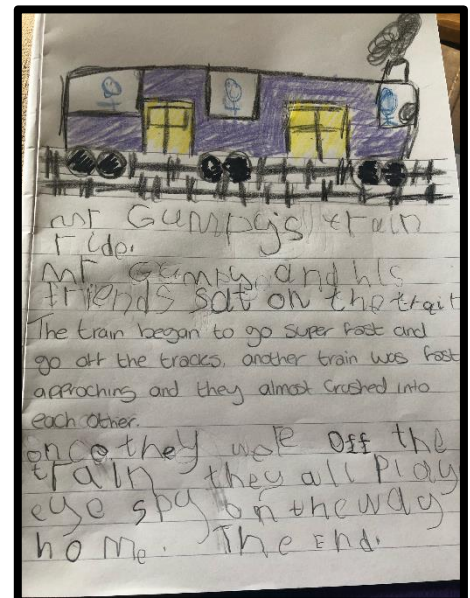 mr Gumpy's train
ride.
mr Gumpy and his
friends sat on the train
The train began to go super fast and
go off the tracks, another train was fast
approching and they almost crushed into
each other.
once they were off the
train they all play
eye spy on the way
home. The End.